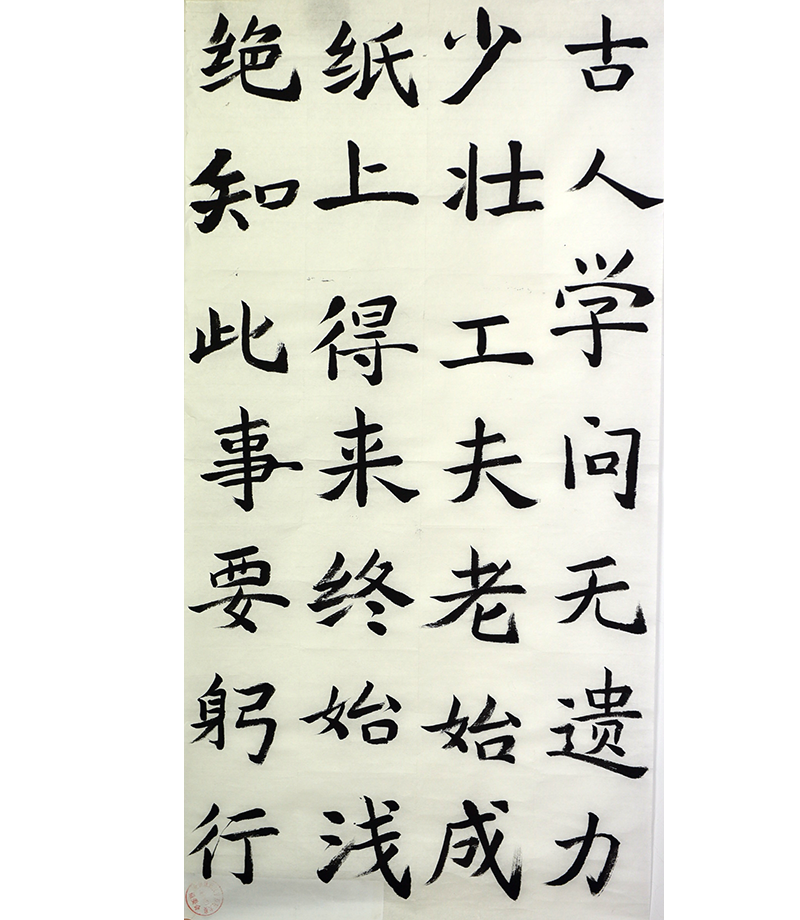 古人学问无遗力
少壮工夫老始成
纸上得来终始浅
绝知此事要躬行